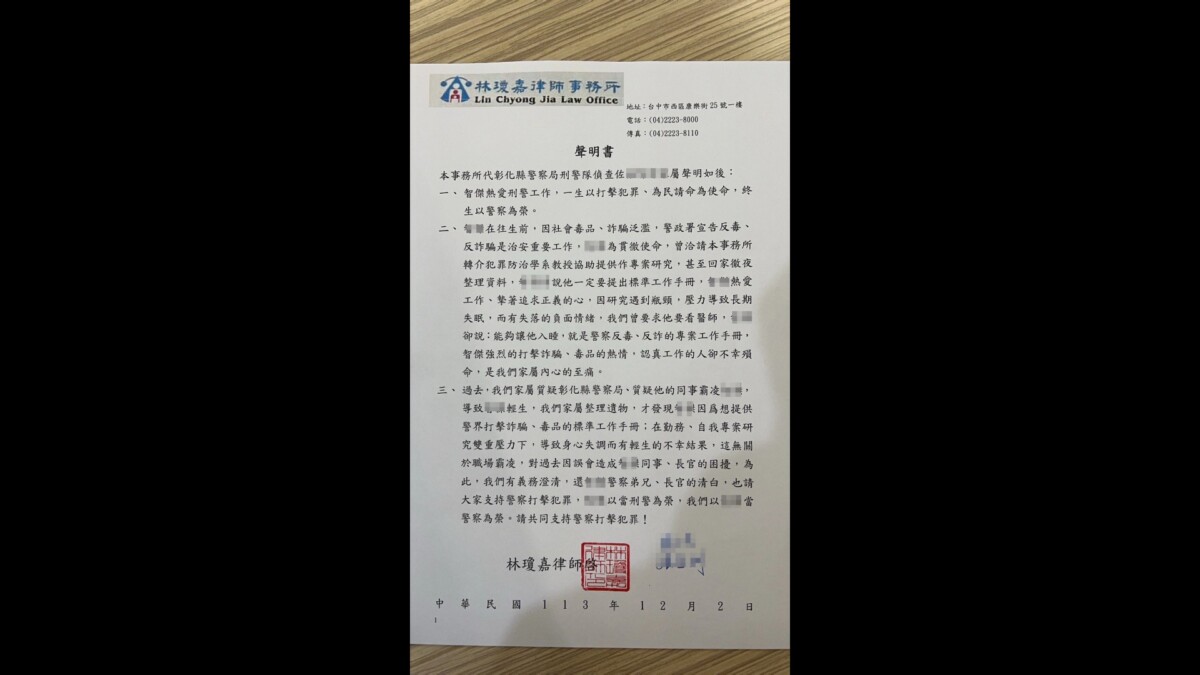 林瓊嘉律師事務所
Lin Chyong Jia Law Office
地址：台中市西區康樂街25號一樓
電話：(04)2223-8000
傳真：(04)2223-8110
聲明書
本事務所代彰化縣警察局刑警隊偵查佐 屬聲明如後：
一、智傑熱愛刑警工作，一生以打擊犯罪、為民請命為使命，終
生以警察為榮。
二、 在往生前，因社會毒品、詐騙泛濫，警政署宣告反毒、
反詐騙是治安重要工作， 為貫徹使命，曾洽請本事務所
轉介犯罪防治學系教授協助提供作專案研究，甚至回家徹夜
整理資料， 說他一定要提出標準工作手冊， 熱愛
工作、摯著追求正義的心，因研究遇到瓶頸，壓力導致長期
失眠，而有失落的負面情緒，我們曾要求他要看醫師，
卻說：能夠讓他入睡，就是警察反毒、反詐的專案工作手冊，
智傑強烈的打擊詐騙、毒品的熱情，認真工作的人卻不幸殞
命，是我們家屬內心的至痛。
三、過去，我們家屬質疑彰化縣警察局、質疑他的同事霸凌 ，
導致 輕生，我們家屬整理遺物，才發現 因爲想提供
警界打擊詐騙、毒品的標準工作手冊；在勤務、自我專案研
究雙重壓力下，導致身心失調而有輕生的不幸結果，這無關
於職場霸凌，對過去因誤會造成 同事、長官的困擾，為
此，我們有義務澄清，還 警察弟兄、長官的清白，也請
大家支持警察打擊犯罪， 以當刑警為榮，我們以 當
警察為榮。請共同支持警察打擊犯罪！
林瓊嘉律師啓
中華民國113年12月2日
1